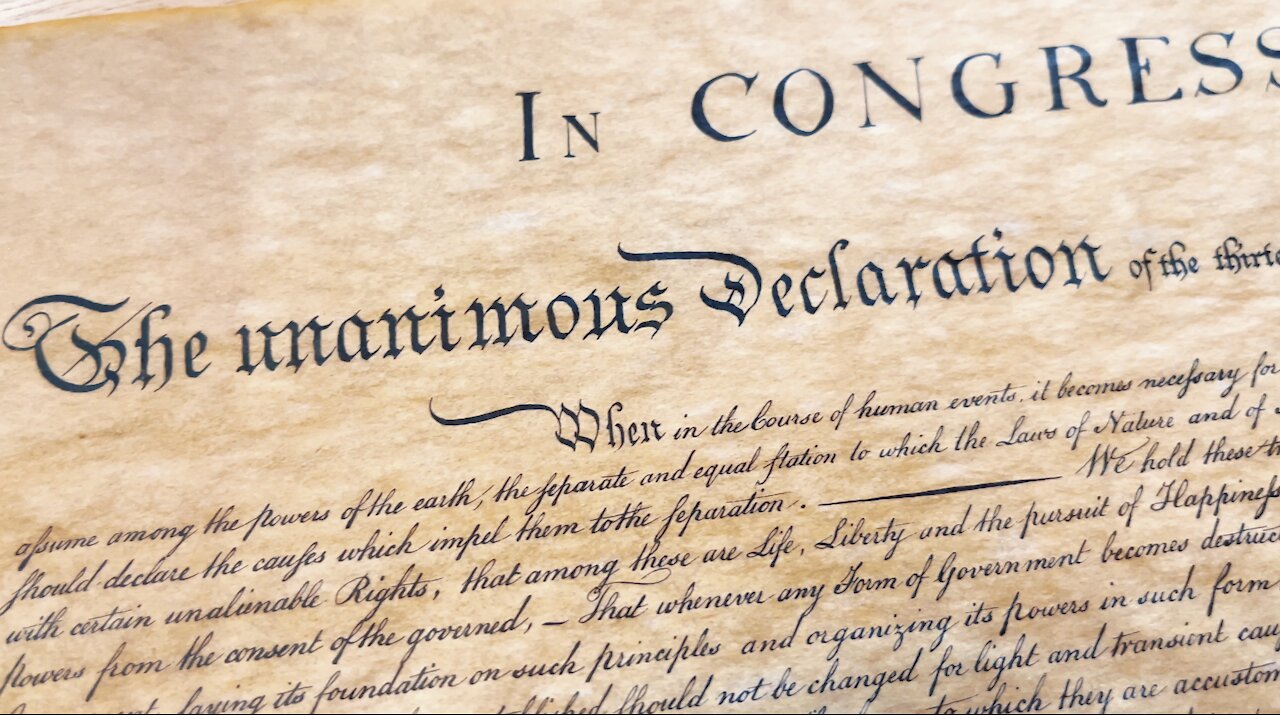 In CONGRESS
The unanimous Declaration of the thirte
When in the Course of human events, it becomes neceſsary for
aſsume among the powers of the earth, the ſeparate and equal ſtation to which the Laws of Nature and of
ſhould declare the cauſes which impel them to the ſeparation. We hold these
with certain unalienable Rights, that among these are Life, Liberty and the pursuit of Happineſs
powers from the consent of the governed, — That whenever any Form of Government becomes destruc
laying its foundation on such principles and organizing its powers in such form
ſhould not be changed for light and transient cau
to which they are accustom